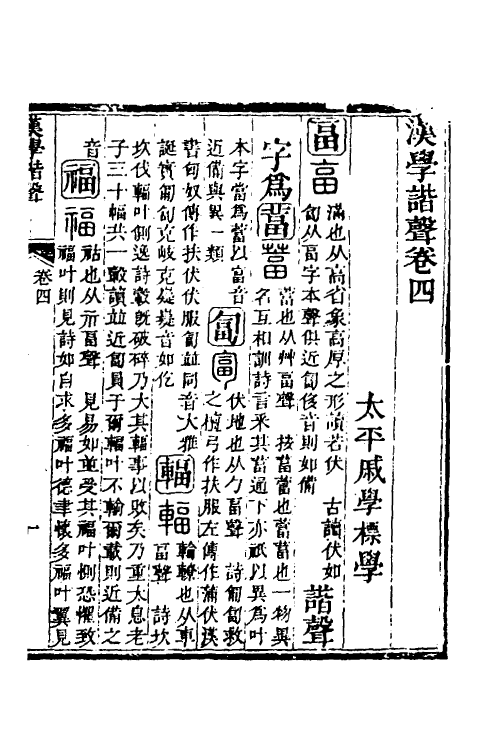 漢學諧聲卷四
太平戚學標學
畐 滿也从高省象高厚之形讀若伏 古讀伏如
匐从畐字本聲供近匐後音則如備 諧聲
字爲葍 葍也从艸畐聲 按葍䔰也䔰葍也一物異
名互相訓詩言采其葍通下亦祇以異爲叶
本字當爲葍以畐音
近備與異一類 匐 伏地也从勹畐聲 詩匍匐救
之檀弓作扶服左傳作蒲伏漢
書匈奴傳作扶伏伏服匐並同音大雅
誕實匍匐克岐克嶷嶷音如仡 輻 輪轑也从車
畐聲 詩坎
坎伐輻叶側逸詩轂旣破碎乃大其輻事以敗矣乃重大息老
子三十輻共一轂讀並近匐員于爾輻叶不輸爾載則近備之
音 福 祐也从示畐聲 見易如並受其福叶惻恐懼致
福叶則見詩如自求多福叶德聿懷多福叶翼見
漢學諧聲 卷四 一